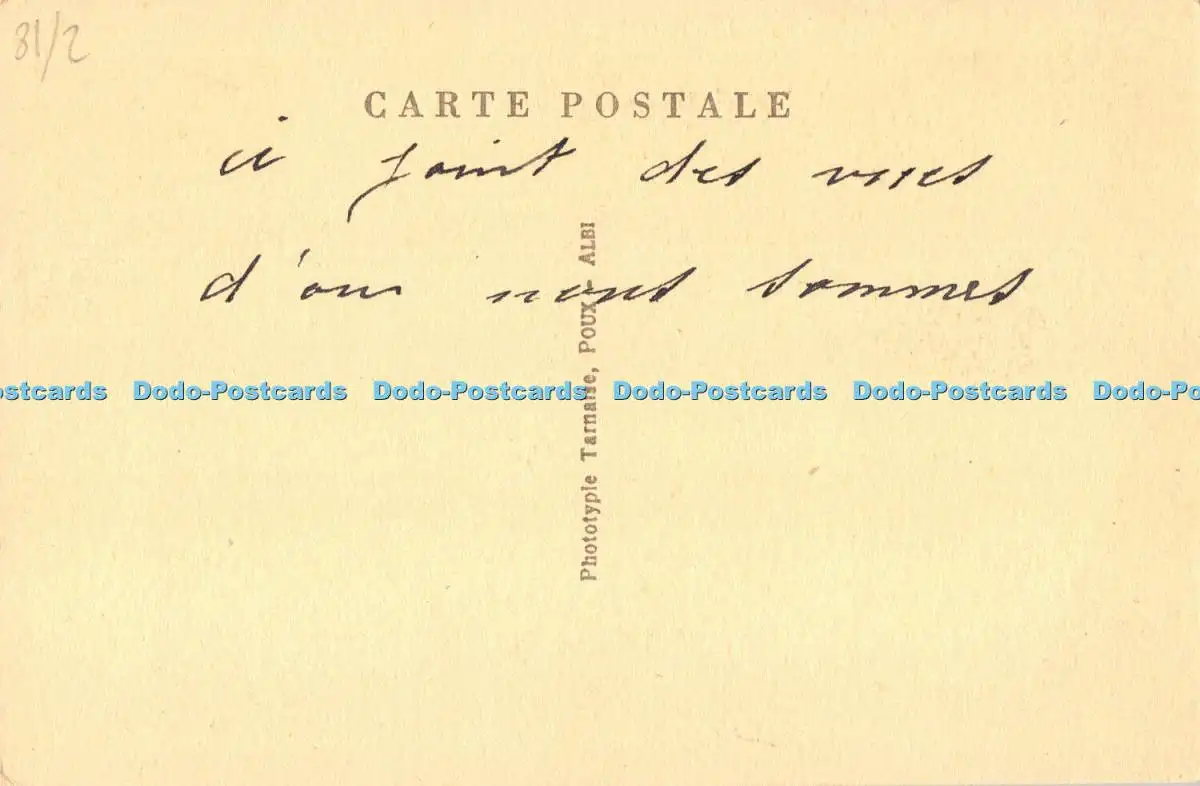 81/2
CARTE POSTALE
ci joint des vues
d'ou nous sommes
Phototypie Tarnaise, POUX - ALBI
ostcards Dodo-Postcards Dodo-Postcards Dodo-Postcards Dodo-Postcards Dodo-Po